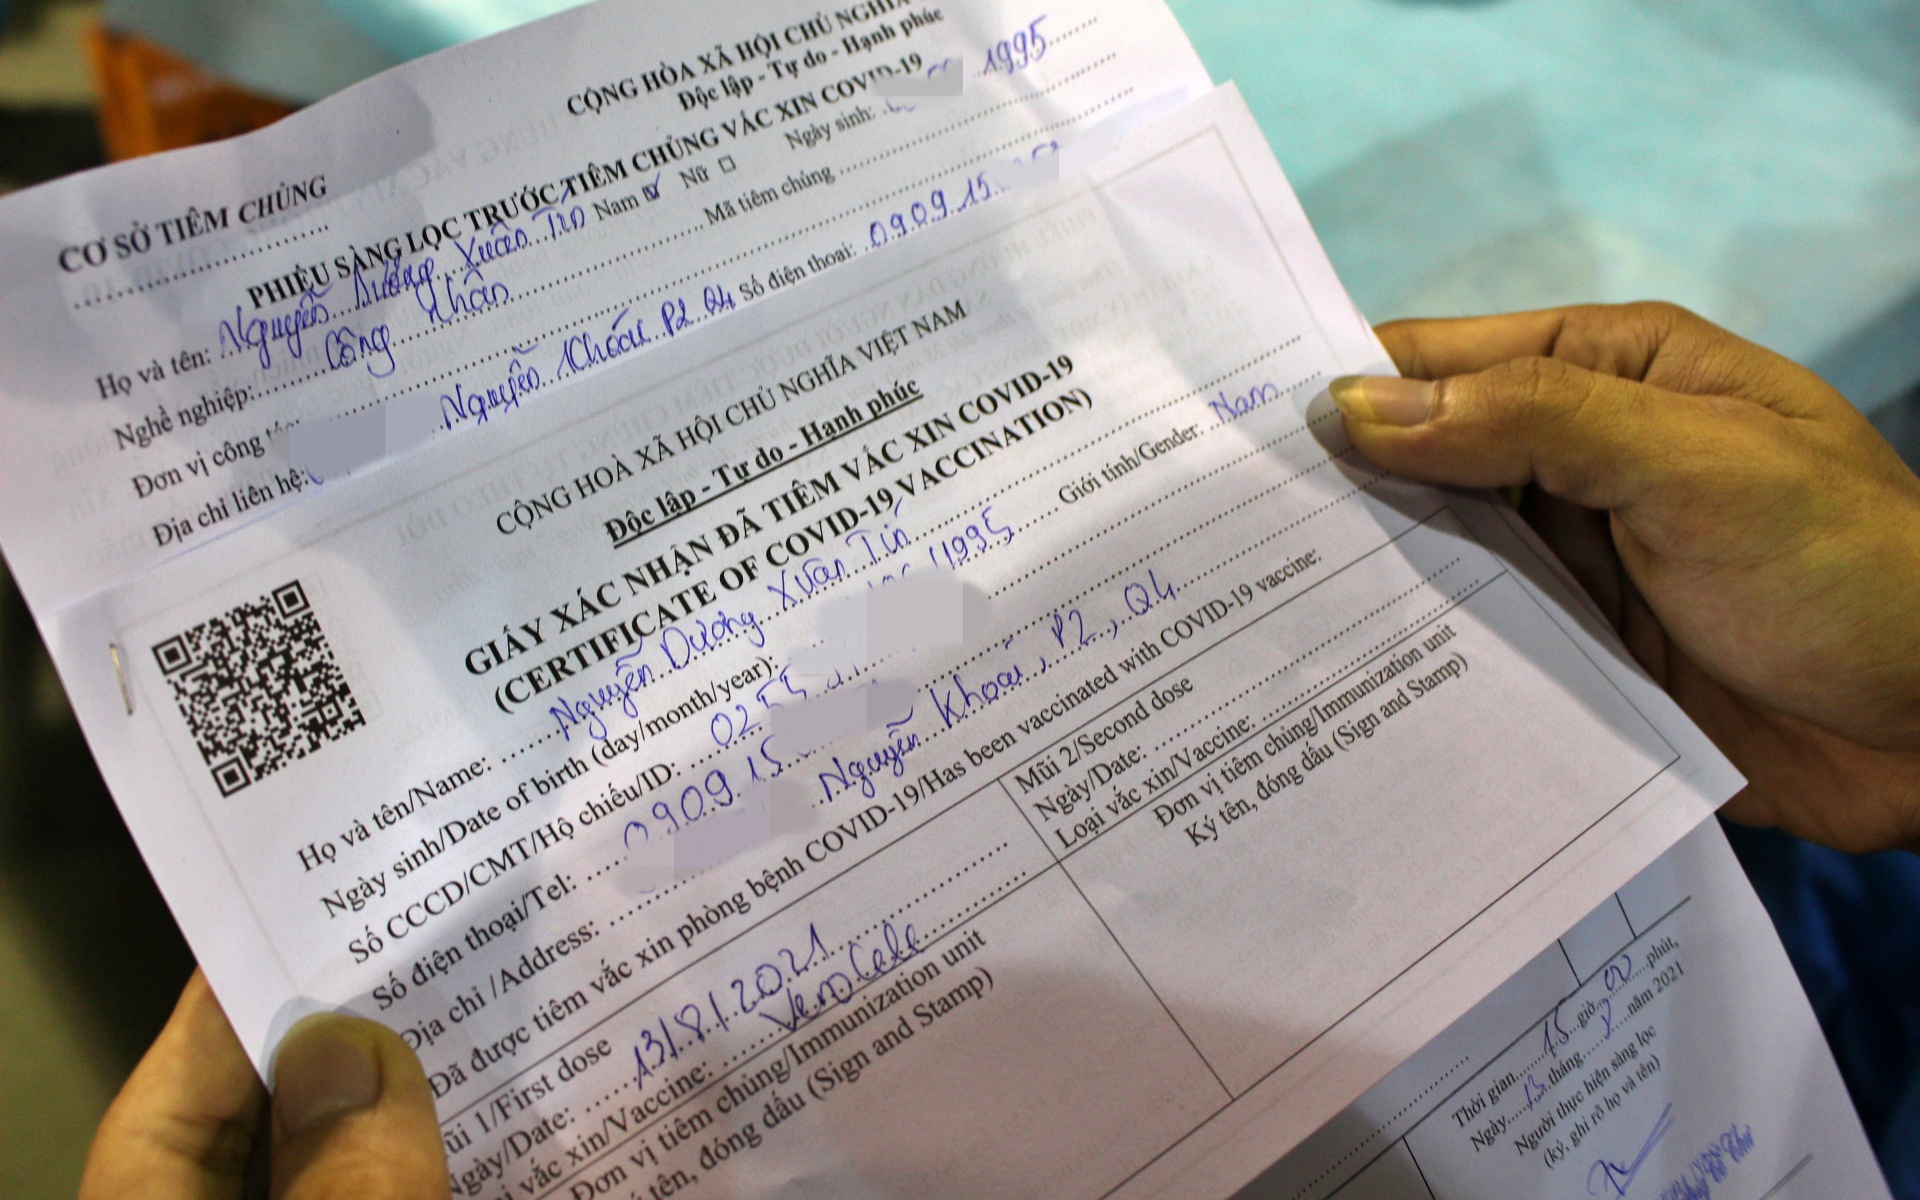 CỘNG HÒA XÃ HỘI CHỦ NGHĨA
Độc lập - Tự do - Hạnh phúc
CƠ SỞ TIÊM CHỦNG
PHIẾU SÀNG LỌC TRƯỚC TIÊM CHỦNG VẮC XIN COVID-19
Họ và tên: Nguyễn Dương Xuân Tín Nam ☑ Nữ ☐ Ngày sinh: 1995
Nghề nghiệp: Công Nhân Mã tiêm chủng
Đơn vị công tác:
Địa chỉ liên hệ: Nguyễn Khoái P2 Q4 Số điện thoại: 0909.15.
CỘNG HOÀ XÃ HỘI CHỦ NGHĨA VIỆT NAM
Độc lập - Tự do - Hạnh phúc
GIẤY XÁC NHẬN ĐÃ TIÊM VẮC XIN COVID-19
(CERTIFICATE OF COVID-19 VACCINATION)
Họ tên/Name: Nguyễn Dương Xuân Tín
Ngày sinh/Date of birth (day/month/year): /1995 Giới tính/Gender: Nam
Số CCCD/CMT/Hộ chiếu/ID: 0255
Số điện thoại/Tel: 0909.15
Địa chỉ /Address: Nguyễn Khoái, P2, Q4
Đã được tiêm vắc xin phòng bệnh COVID-19/Has been vaccinated with COVID-19 vaccine:
Mũi 1/First dose
Ngày/Date: 13/8/2021
vắc xin/Vaccine: Vero Cell
Đơn vị tiêm chủng/Immunization unit
tên, đóng dấu (Sign and Stamp)
Mũi 2/Second dose
Ngày/Date:
Loại vắc xin/Vaccine:
Đơn vị tiêm chủng/Immunization unit
Ký tên, đóng dấu (Sign and Stamp)
Thời gian 15 giờ 00 phút,
Ngày 13 tháng 8 năm 2021
Người thực hiện sàng lọc
(ký, ghi rõ họ và tên)